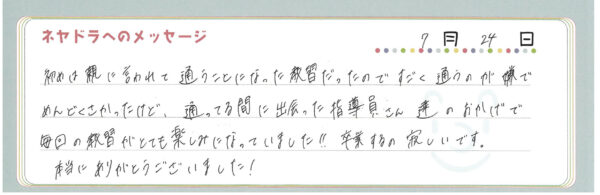 ネヤドラへのメッセージ
7月24日
初めは親に言われて通うことになった教習だったのですごく通うのが嫌で
めんどくさかったけど、通ってる間に出会った指導員さん達のおかげで
毎回の教習がとても楽しみになっていました!! 卒業するの寂しいです。
本当にありがとうございました!